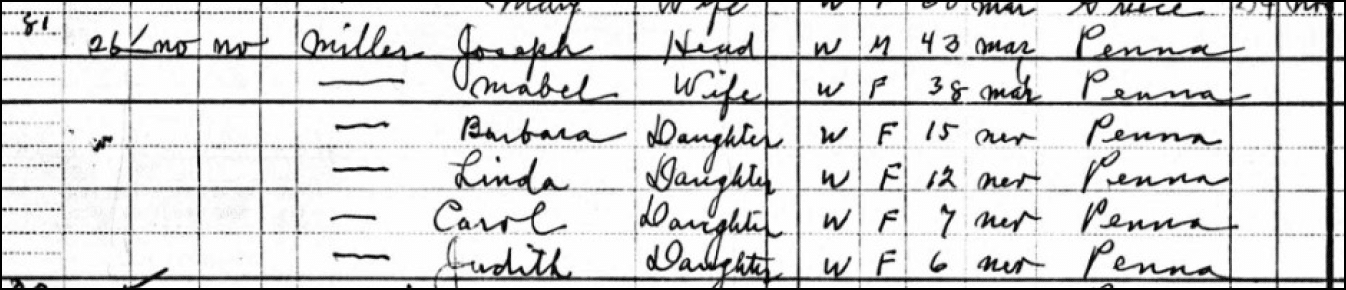 Mary Wife W F mar Greece
81 26 no no Miller Joseph Head W M 43 mar Penna
— Mabel Wife W F 38 mar Penna
— Barbara Daughter W F 15 nev Penna
— Linda Daughter W F 12 nev Penna
— Carol Daughter W F 7 nev Penna
— Judith Daughter W F 6 nev Penna